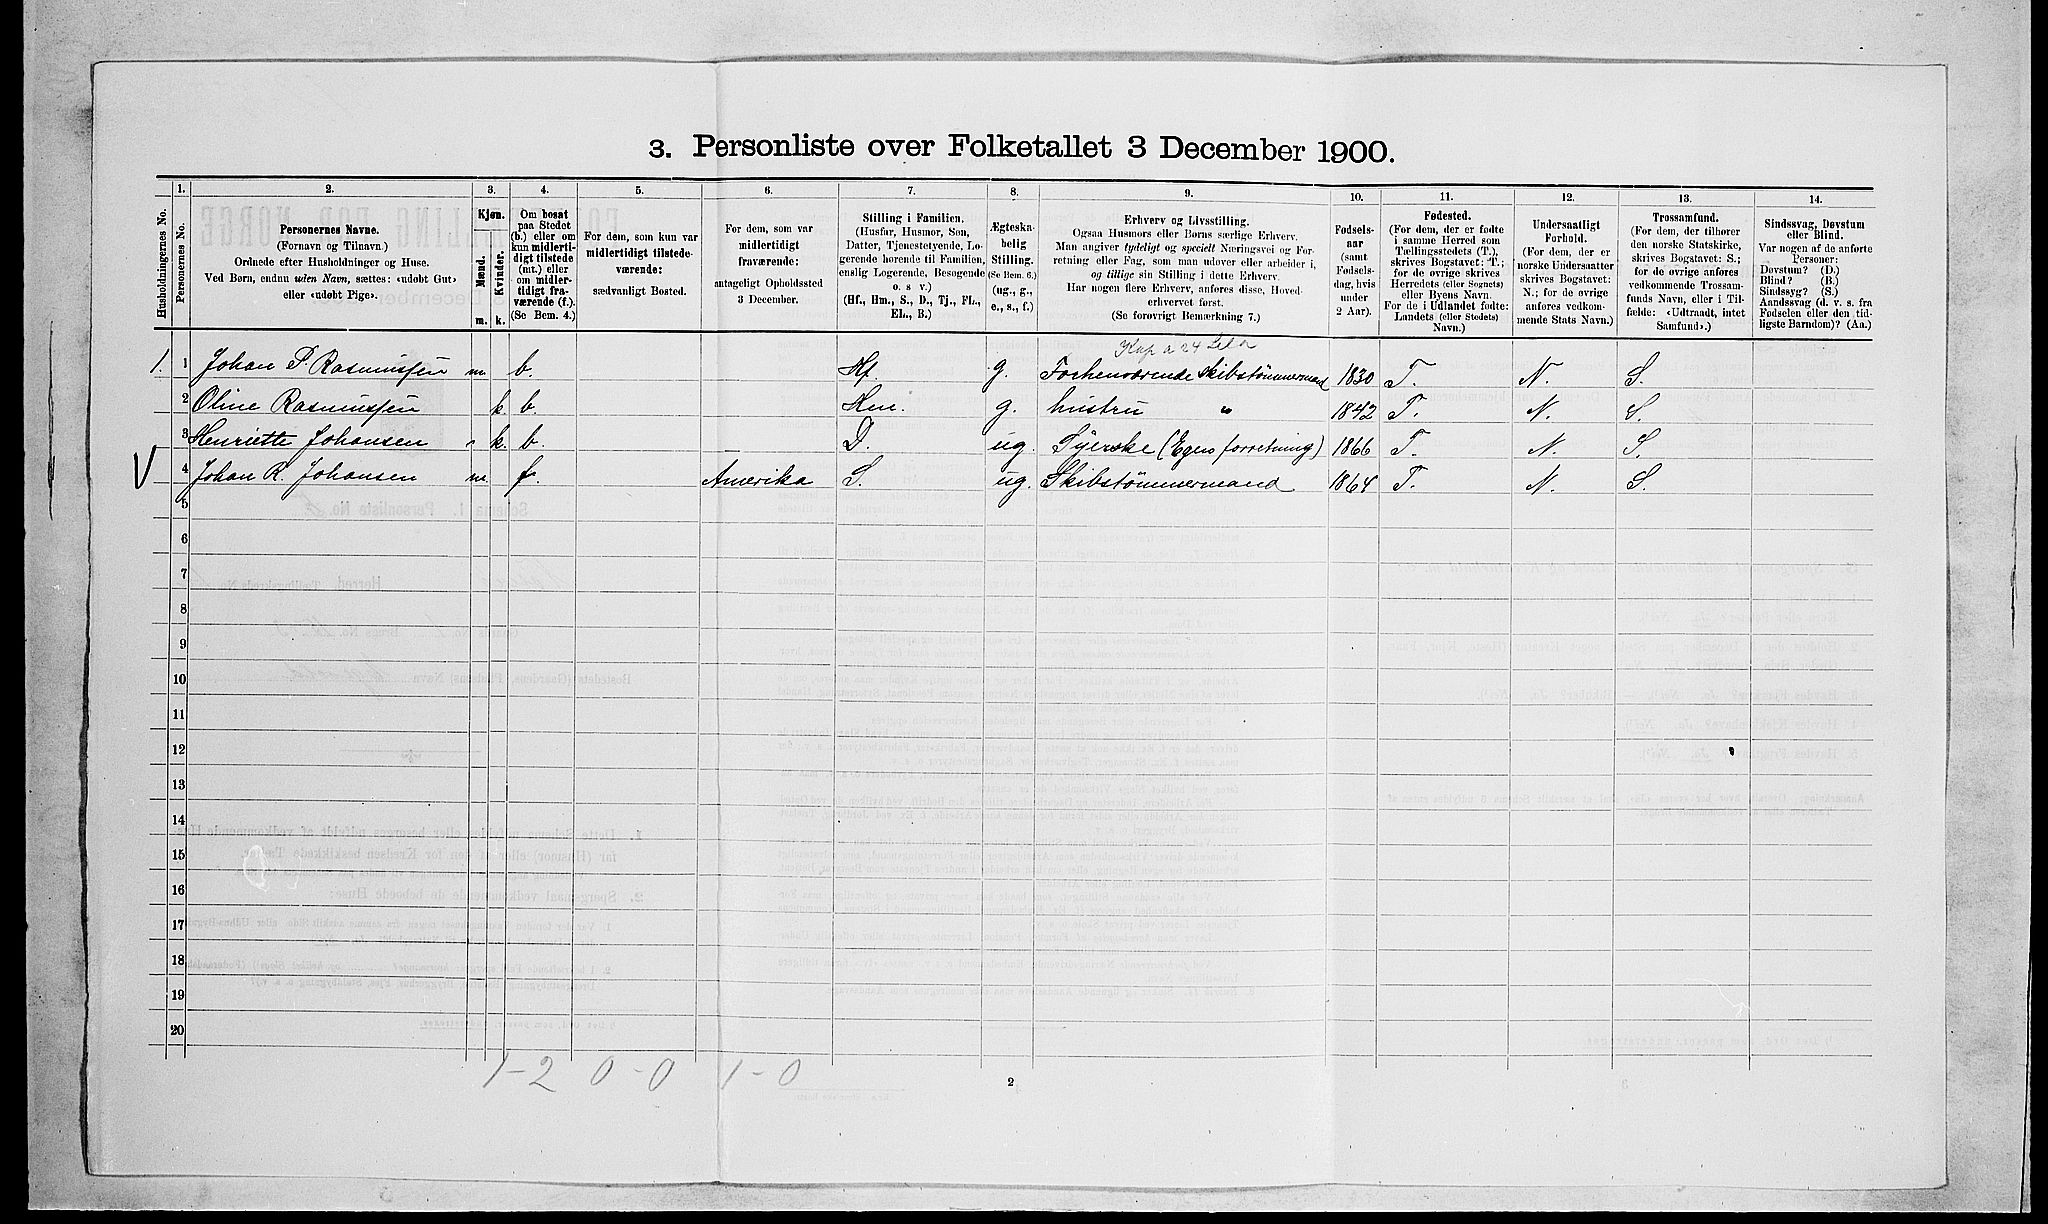 3. Personliste over Folketallet 3 December 1900.
1. 2. 3. 4. 5. 6. 7. 8. 9. 10. 11. 12. 13. 14.
Husholdningernes No.
Personernes No.
Personernes Navne.
(Fornavn og Tilnavn.)
Ordnede efter Husholdninger og Huse.
Ved Børn, endnu uden Navn, sættes: «udøbt Gut»
eller «udøbt Pige».
Kjøn.
Mænd. Kvinder.
m. k.
Om bosat
paa Stedet
(b.) eller om
kun midlerti-
digt tilstede
(mt.) eller
om midler-
tidigt fra-
værende (f.).
(Se Bem. 4.)
For dem, som kun var
midlertidigt tilstede-
værende:
sædvanligt Bosted.
For dem, som var
midlertidigt
fraværende:
antageligt Opholdssted
3 December.
Stilling i Familien.
(Husfar, Husmor, Søn,
Datter, Tjenestetyende, Lo-
gerende hørende til Familien,
enslig Logerende, Besøgende
o. s. v.)
(Hf., Hm., S., D., Tj., FL.,
EL., B.)
Ægteska-
belig
Stilling.
(Se Bem. 6.)
(ug., g.,
e., s., f.)
Erhverv og Livsstilling.
Ogsaa Husmors eller Børns særlige Erhverv.
Man angiver tydeligt og specielt Næringsvei og For-
retning eller Fag, som man udøver eller arbeider i,
og tillige sin Stilling i dette Erhverv.
Har nogen flere Erhverv, anføres disse, Hoved-
erhvervet først.
(Se forøvrigt Bemærkning 7.)
Fødsels-
aar
(samt
Fødsels-
dag, hvis
under
2 Aar).
Fødested.
(For dem, der er fødte
i samme Herred som
Tællingsstedets (T.),
skrives Bogstavet: T.;
for de øvrige skrives
Herredets (eller Sognets)
eller Byens Navn.
For de i Udlandet fødte:
Landets (eller Stedets)
Navn.)
Undersaatligt
Forhold.
(For dem, der er
norske Undersaatter
skrives Bogstavet:
N.; for de øvrige
anføres vedkom-
mende Stats Navn.)
Trossamfund.
(For dem, der tilhører
den norske Statskirke,
skrives Bogstavet: S.;
for de øvrige anføres
vedkommende Trossam-
funds Navn, eller i Til-
fælde: «Udtraadt, intet
Samfund».)
Sindssvag, Døvstum
eller Blind.
Var nogen af de anførte
Personer:
Døvstum? (D.)
Blind? (B.)
Sindssyg? (S.)
Aandssvag (d. v. s. fra
Fødselen eller den tid-
ligste Barndom)? (Aa.)
1. 1 Johan P. Rasmussen m. b. Hf g. Forhenværende skibstømmermand 1830 T. N. S.
2 Oline Rasmussen k. b. Hm. g. hustru " 1842 T. N. S.
3 Henriette Johansen k. b. D. ug. Syerske (Egen forretning) 1866 T. N. S.
V 4 Johan R. Johansen m. f. Amerika S. ug. Skibstømmermand 1864 T. N. S.
5
6
7
8
9
10
11
12
13
14
15
16
17
18
19
20
1-2 0-0 1-0
2